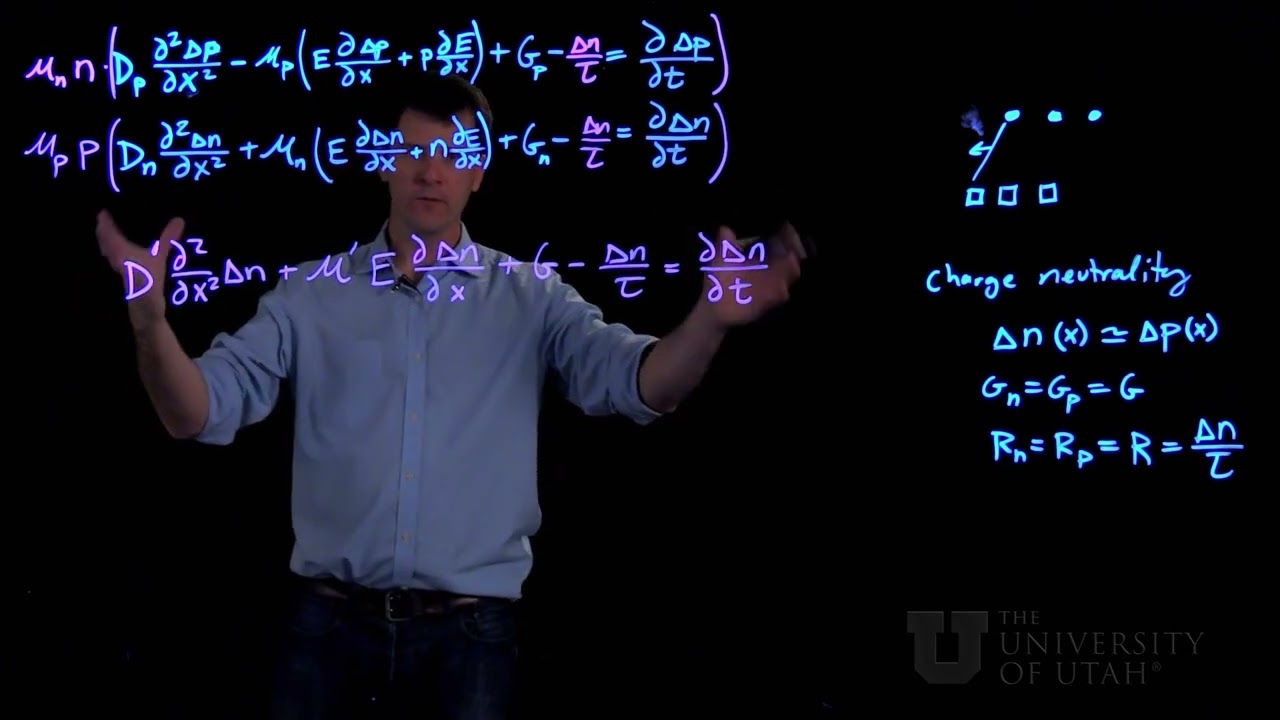 μₙ n · (Dₚ ∂²Δp/∂x² − μₚ(E ∂Δp/∂x + p ∂E/∂x) + Gₚ − Δn/τ = ∂Δp/∂t)
μₚ p (Dₙ ∂²Δn/∂x² + μₙ(E ∂Δn/∂x + n ∂E/∂x) + Gₙ − Δn/τ = ∂Δn/∂t)
D′ ∂²/∂x² Δn + μ′ E ∂Δn/∂x + G − Δn/τ = ∂Δn/∂t
charge neutrality
Δn(x) ≃ Δp(x)
Gₙ = Gₚ = G
Rₙ = Rₚ = R = Δn/τ
U THE
UNIVERSITY
OF UTAH®